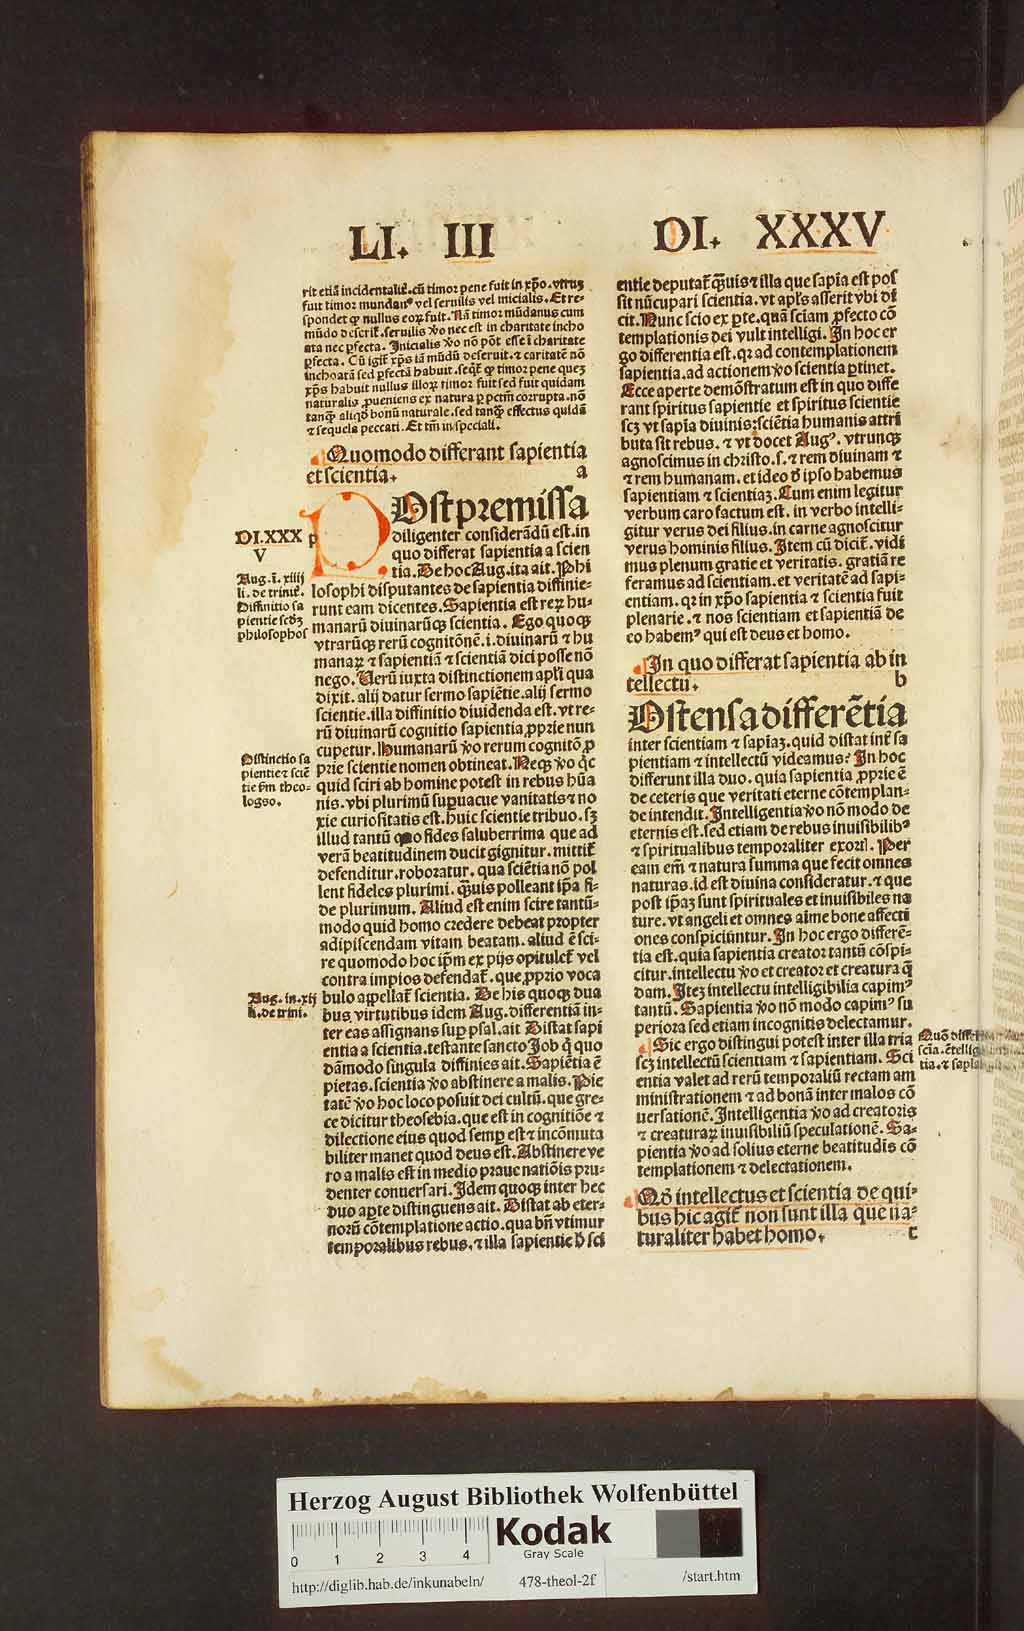 LI. III
DI. XXXV
rit etiā incidentalit̄. cū timor pene fuit in xp̄o. vtrū
fuit timor mundanꝰ vel seruilis vel inicialis. Et re-
spondet ꝙ nullus eoꝝ fuit. Nā timor mūdanus cum
mūdo deserit̄. seruilis v̓o nec est in charitate incho
ata nec ꝑfecta. Inicialis v̓o nō pōt esse ī charitate
ꝑfecta. Cū igit̄ xp̄s iā mūdū deseruit. ⁊ caritatē nō
inchoatā sed ꝑfectā habuit. seqt̄ ꝙ timor pene queꝫ
xp̄s habuit nullus illoꝝ timor fuit sed fuit quidam
naturalis ꝓueniens ex natura ꝑ pctm̄ corrupta. nō
tanqꝫ aliqd̓ bonū naturale. sed tanqꝫ effectus quidā
⁊ sequela peccati. Et tm̄ in speciali.
Quomodo differant sapientia
et scientia. a
Ostpremissa
diligenter considerādū est. in
quo differat sapientia a scien
tia. De hoc Aug. ita ait. Phi
losophi disputantes de sapientia diffinie-
runt eam dicentes. Sapientia est reꝝ hu-
manarū diuinarūqꝫ scientia. Ego quoqꝫ
vtrarūqꝫ rerū cognitōnē. i. diuinarū ⁊ hu
manaꝝ ⁊ sapientiā ⁊ scientiā dici posse nō
nego. Verū iuxta distinctionem apl̓i qua
dixit. alij datur sermo sapiētie. alij sermo
scientie. illa diffinitio diuidenda est. vt re-
rū diuinarū cognitio sapientia ꝓprie nun
cupetur. Humanarū v̓o rerum cognitō ꝓ
prie scientie nomen obtineat. Neqꝫ v̓o qc̄
quid sciri ab homine potest in rebus hūa
nis. vbi plurimū suꝑuacue vanitatis ⁊ no
xie curiositatis est. huic scientie tribuo. sꝫ
illud tantū quo fides saluberrima que ad
verā beatitudinem ducit gignitur. nutrit̄
defenditur. roboratur. qua sciētia nō pol
lent fideles plurimi. quis polleant ip̄a fi-
de plurimum. Aliud est enim scire tantū-
modo quid homo credere debeat propter
adipiscendam vitam beatam. aliud ē sci-
re quomodo hoc ip̄m ex pijs opitulet̄ vel
contra impios defendat̄. que ꝓprio voca
bulo appellat̄ scientia. De his quoqꝫ dua
bus virtutibus idem Aug. differentiā in-
ter eas assignans suꝑ psal. ait Distat sapi
entia a scientia. testante sancto Job q̄ quo
dāmodo singula diffinies ait. Sapiētia ē
pietas. scientia v̓o abstinere a malis. Pie
tatē v̓o hoc loco posuit dei cultū. que gre-
ce dicitur theosebia. que est in cognitiōe ⁊
dilectione eius quod semꝑ est ⁊ incōmuta
biliter manet quod deus est. Abstinere ve
ro a malis est in medio praue natiōis pru-
denter conuersari. Idem quoqꝫ inter hec
duo aꝑte distinguens ait. Distat ab eter-
norū cōtemplatione actio. qua bn̄ vtimur
temporalibus rebus. ⁊ illa sapientie d̓ sci
DI.XXX
V
p
Aug. ī. xiiij
li. de trinit̄.
Diffinitio sa
pientie scd̓ꝫ
philosophos
Distinctio sa
pientie ⁊ sciē
tie sm̄ theo-
logos.
Aug. in. xij
li. de trini.
entie deputat̄ qꝫuis ⁊ illa que sapia est pos
sit nūcupari scientia. vt apl̓s asserit vbi di
cit. Nunc scio ex ꝑte. quā sciam ꝓfecto cō
templationis dei vult intelligi. In hoc er
go differentia est. qꝛ ad contemplationem
sapientia. ad actionem v̓o scientia ꝑtinet.
Ecce aperte demōstratum est in quo diffe
rant spiritus sapientie et spiritus scientie
scꝫ vt sapia diuinis: sciētia humanis attri
buta sit rebus. ⁊ vt docet Augꝰ. vtrunqꝫ
agnoscimus in christo. s. ⁊ rem diuinam ⁊
⁊ rem humanam. et ideo d̓ ipso habemus
sapientiam ⁊ scientiaꝫ. Cum enim legitur
verbum caro factum est. in verbo intelli-
gitur verus dei filius. in carne agnoscitur
verus hominis filius. Item cū dicit̄. vidi
mus plenum gratie et veritatis. gratiā re
feramus ad scientiam. et veritatē ad sapi-
entiam. qꝛ in xp̄o sapientia ⁊ scientia fuit
plenarie. ⁊ nos scientiam et sapientiā de
eo habemꝰ qui est deus et homo.
In quo differat sapientia ab in
tellectu. b
Ostensa differētia
inter scientiam ⁊ sapiaꝫ. quid distat int̄ sa
pientiam ⁊ intellectū videamus? In hoc
differunt illa duo. quia sapientia ꝓprie ē
de ceteris que veritati eterne cōtemplan-
de intendit. Intelligentia v̓o nō modo de
eternis est. sed etiam de rebus inuisibilibꝰ
⁊ spiritualibus temporaliter exortl̓. Per
eam em̄ ⁊ natura summa que fecit omnes
naturas. id est diuina consideratur. ⁊ que
post ip̄aꝫ sunt spirituales et inuisibiles na
ture. vt angeli et omnes aīme bone affecti
ones conspiciūntur. In hoc ergo differē-
tia est. quia sapientia creator tantū cōspi-
citur. intellectu v̓o et creator et creatura q̄
dam. Iteꝫ intellectu intelligibilia capimꝰ
tantū. Sapientia v̓o nō modo capimꝰ su
periora sed etiam incognitis delectamur.
Sic ergo distingui potest inter illa tria
scꝫ intellectū scientiam ⁊ sapientiam. Sci
entia valet ad rerū temporaliū rectam am
ministrationem ⁊ ad bonā inter malos cō
uersationē. Intelligentia v̓o ad creatoris
⁊ creaturaꝝ inuisibiliū speculationē. Sa-
pientia v̓o ad solius eterne beatitudis cō
templationem ⁊ delectationem.
Qd̓ intellectus et scientia de qui-
bus hic agit̄ non sunt illa que na-
turaliter habet homo. c
Quō diffe
scīa. ētellig
tia. ⁊ sapia
Herzog August Bibliothek Wolfenbüttel
0 1 2 3 4
Kodak
Gray Scale
http://diglib.hab.de/inkunabeln/ 478-theol-2f /start.htm